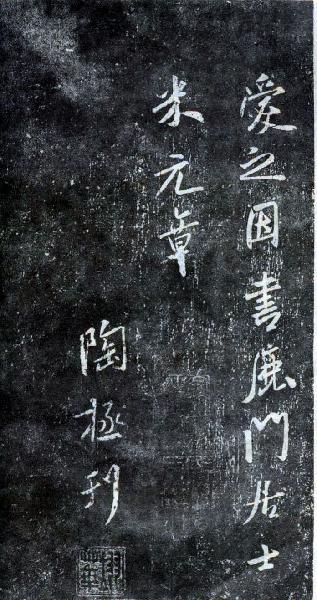 愛之因書鹿門居士
米元章
陶拯刋